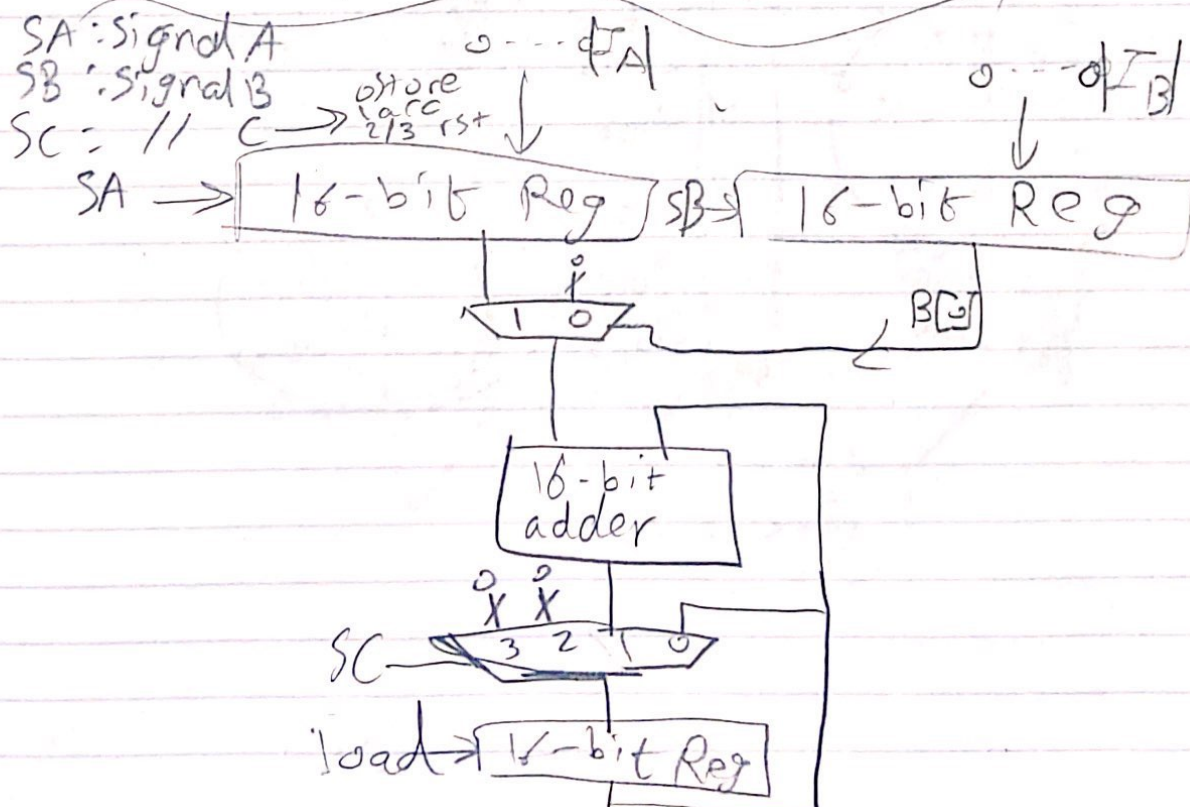 SA : Signal A
SB : Signal B
SC : // C → 0 store
1 acc
2/3 rst
0 ---- 0|I_A|
0 ---- 0|I_B|
SA → 16-bit Reg
SB → 16-bit Reg
0
1 0
B[0]
16-bit
adder
0 0
3 2 1 0
SC
load → 16-bit Reg